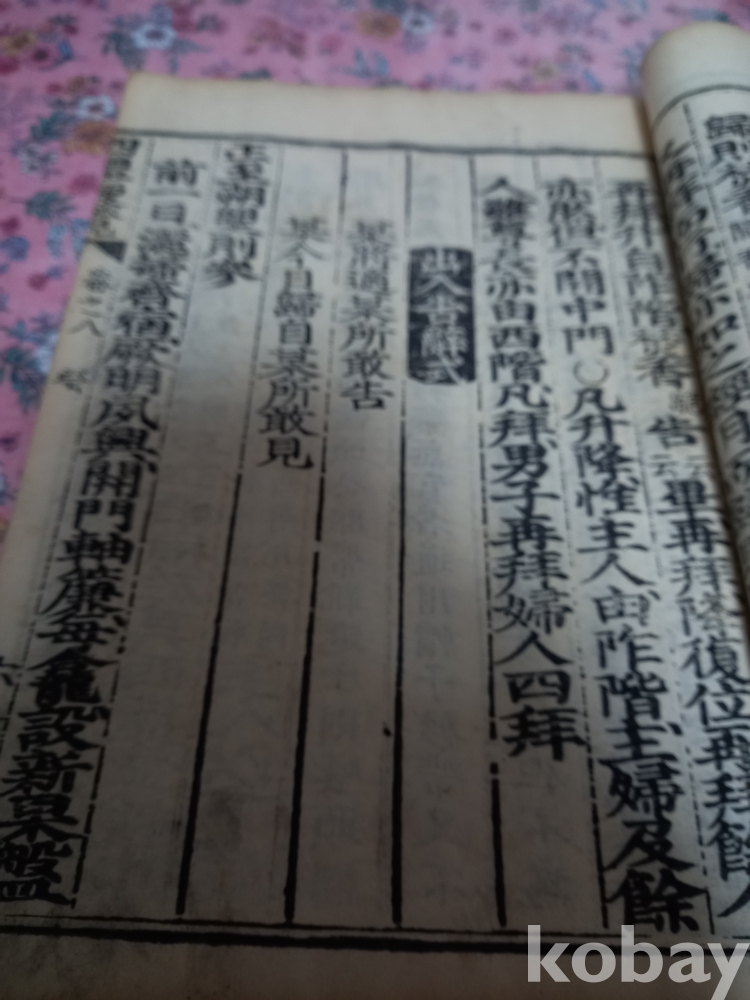 歸則
再拜升自阼階焚香告云云畢再拜降復位再拜餘人
亦然但不開中門○凡升降惟主人由阼階主婦及餘
人雖尊長亦由西階凡拜男子再拜婦人四拜
出入告辭式
某將適某所敢告
某今日歸自某所敢見
正至朔望則參
前一日灑掃齊宿厥明夙興開門軸簾每龕設新果盤
卷之八
kobay